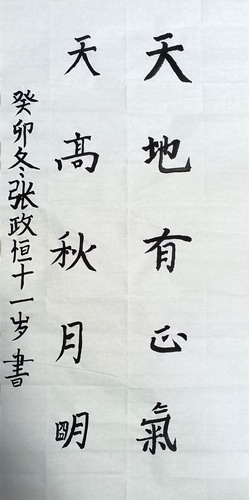 天地有正氣
天高秋月明
癸卯冬張政恒十一岁書